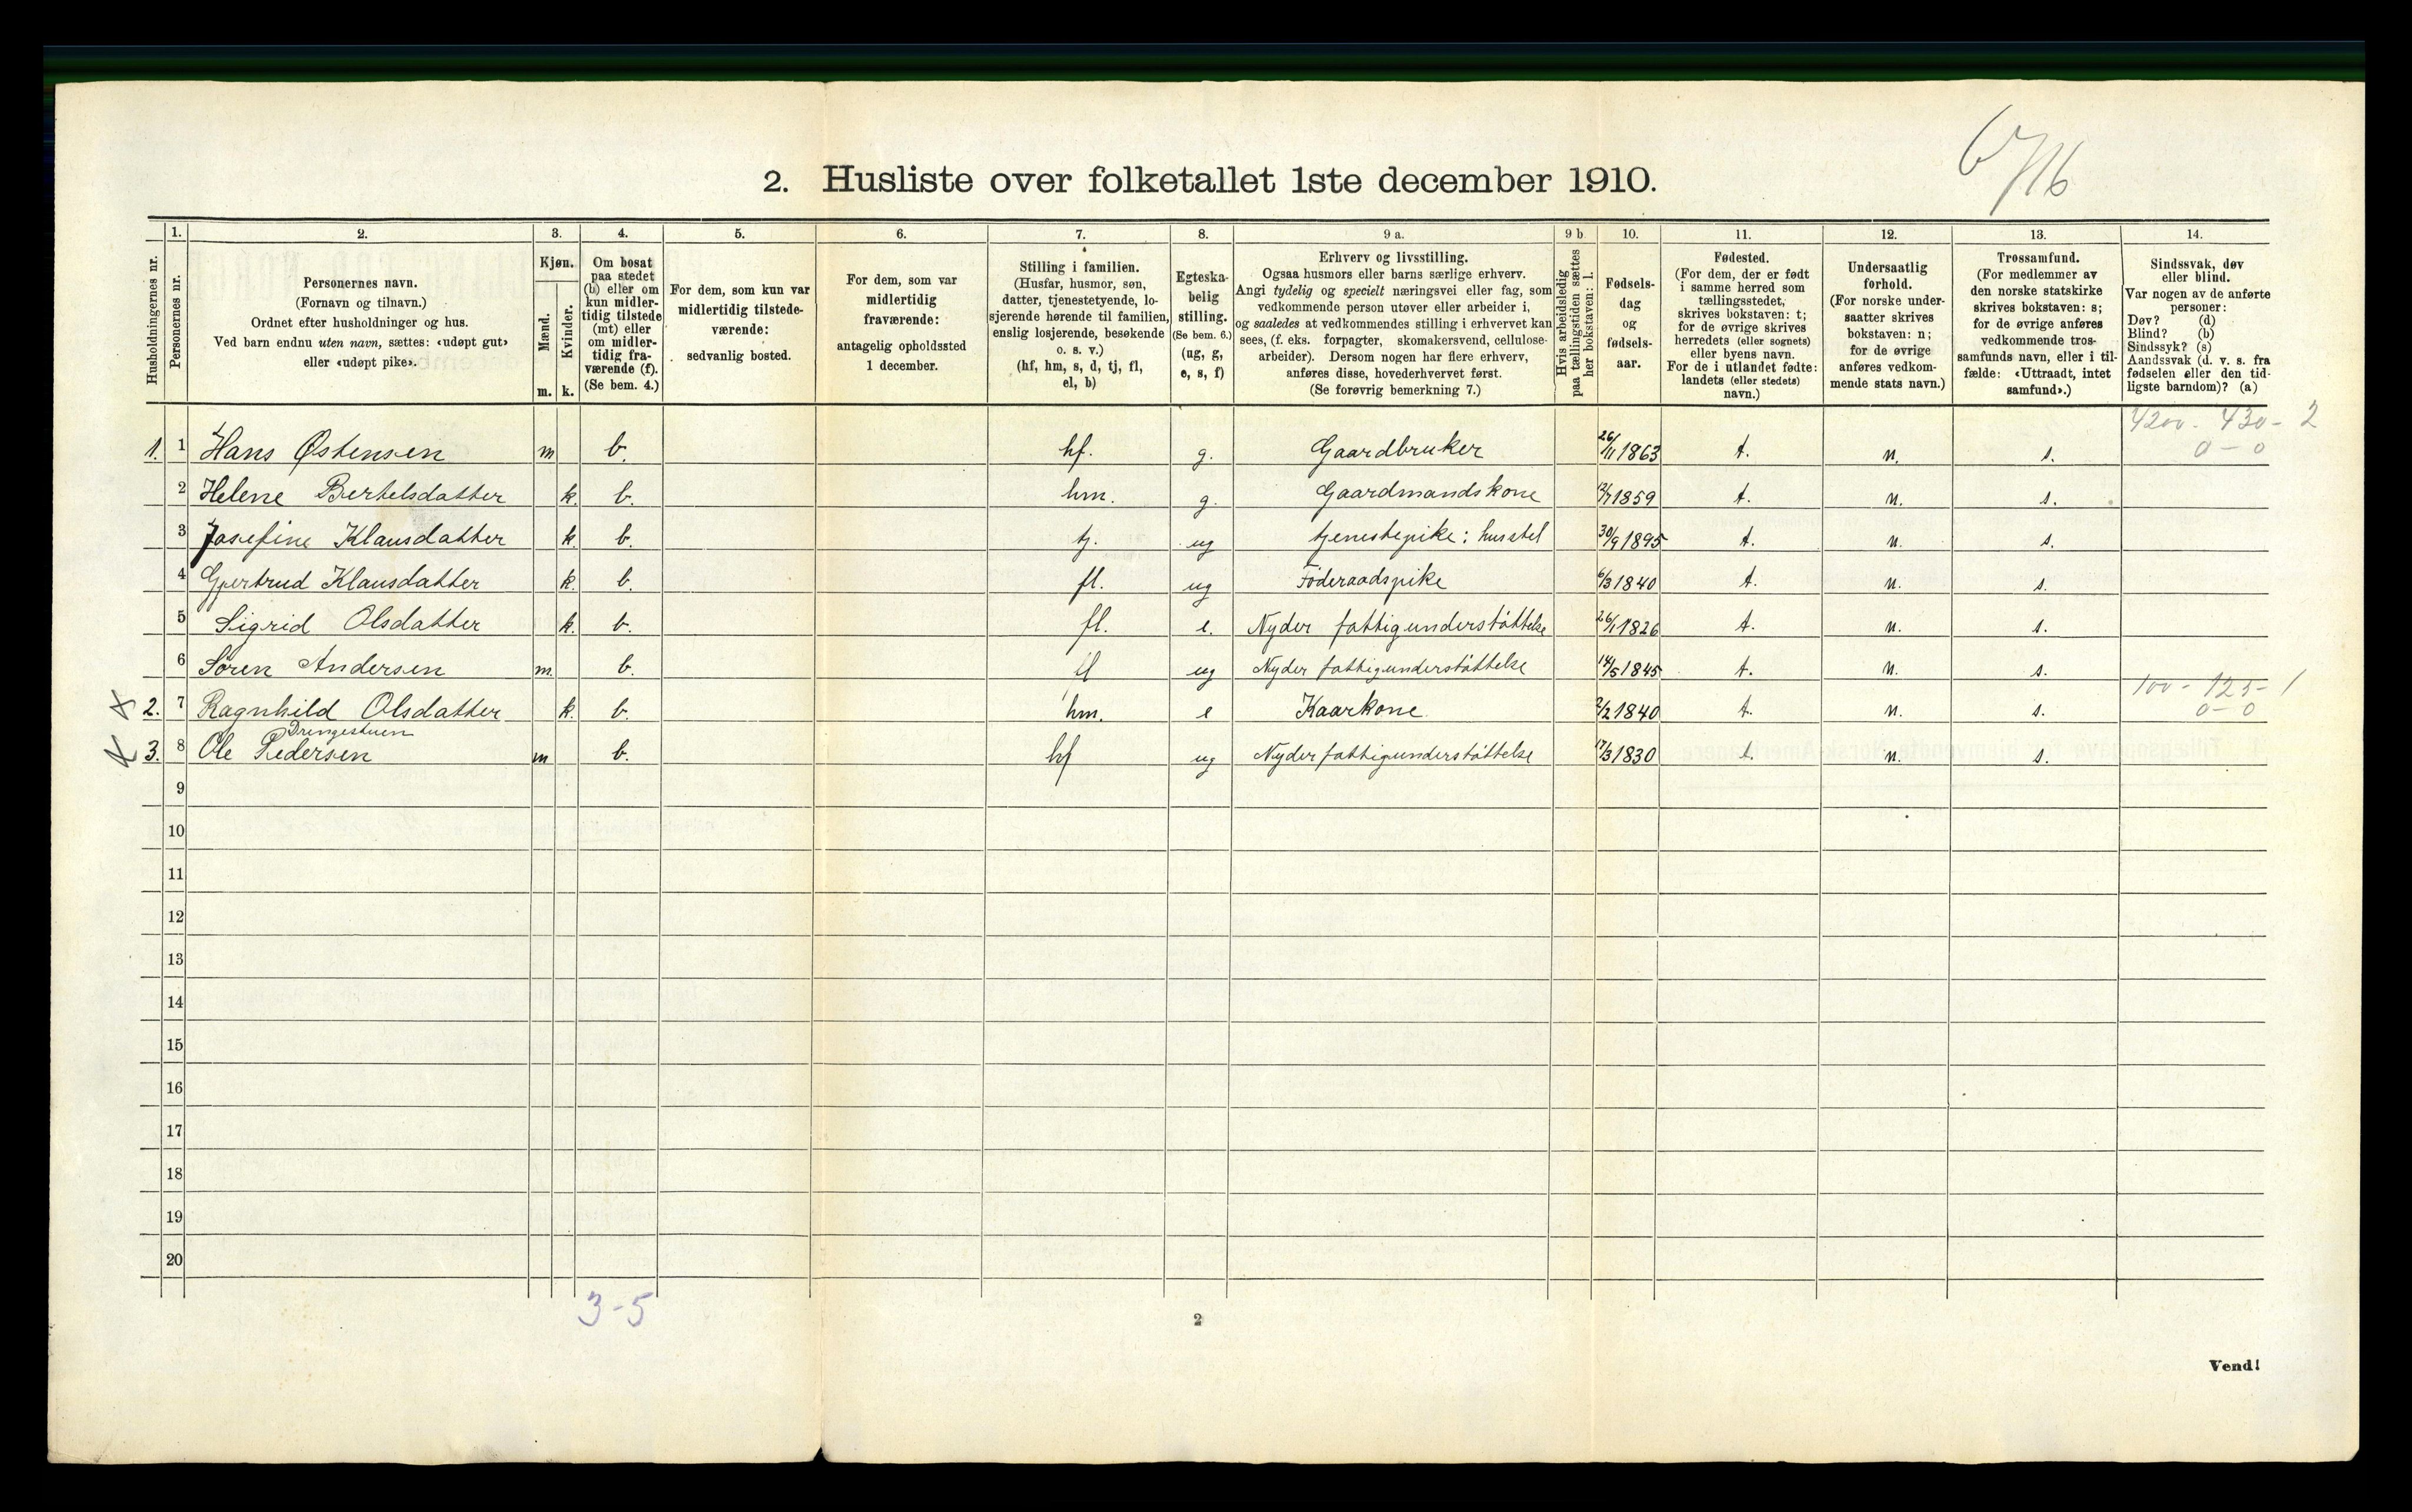 6/16
2. Husliste over folketallet 1ste december 1910.
Husholdningernes nr.
1.
Personernes nr.
2.
Personernes navn.
(Fornavn og tilnavn.)
Ordnet efter husholdninger og hus.
Ved barn endnu uten navn, sættes: «udøpt gut»
eller «udøpt pike».
3.
Kjøn.
Mænd.
Kvinder.
m. k.
4.
Om bosat
paa stedet
(b) eller om
kun midler-
tidig tilstede
(mt) eller
om midler-
tidig fra-
værende (f).
(Se bem. 4.)
5.
For dem, som kun var
midlertidig tilstede-
værende:
sedvanlig bosted.
6.
For dem, som var
midlertidig
fraværende:
antagelig opholdssted
1 december.
7.
Stilling i familien.
(Husfar, husmor, søn,
datter, tjenestetyende, lo-
sjerende hørende til familien,
enslig losjerende, besøkende
o. s. v.)
(hf, hm, s, d, tj, fl,
el, b)
8.
Egteska-
belig
stilling.
(Se bem. 6.)
(ug, g,
e, s, f)
9 a.
Erhverv og livsstilling.
Ogsaa husmors eller barns særlige erhverv.
Angi tydelig og specielt næringsvei eller fag, som
vedkommende person utøver eller arbeider i,
og saaledes at vedkommendes stilling i erhvervet kan
sees, (f. eks. forpagter, skomakersvend, cellulose-
arbeider). Dersom nogen har flere erhverv,
anføres disse, hovederhvervet først.
(Se forøvrig bemerkning 7.)
9 b
Hvis arbeidsledig
paa tællingstiden sættes
her bokstaven: l.
10.
Fødsels-
dag
og
fødsels-
aar.
11.
Fødested.
(For dem, der er født
i samme herred som
tællingsstedet,
skrives bokstaven: t;
for de øvrige skrives
herredets (eller sognets)
eller byens navn.
For de i utlandet fødte:
landets (eller stedets)
navn.)
12.
Undersaatlig
forhold.
(For norske under-
saatter skrives
bokstaven: n;
for de øvrige
anføres vedkom-
mende stats navn.)
13.
Trossamfund.
(For medlemmer av
den norske statskirke
skrives bokstaven: s;
for de øvrige anføres
vedkommende tros-
samfunds navn, eller i til-
fælde: «Uttraadt, intet
samfund».)
14.
Sindssvak, døv
eller blind.
Var nogen av de anførte
personer:
Døv? (d)
Blind? (b)
Sindssyk? (s)
Aandssvak (d. v. s. fra
fødselen eller den tid-
ligste barndom)? (a)
4200 - 430 - 2
0 - 0
1. 1 Hans Østensen m b. hf. g. Gaardbruker 26/11 1863 t. n. s.
2 Helene Bertelsdatter k. b. hm. g. Gaardmandskone 12/7 1859 t. n. s.
3 Josefine Klausdatter k. b. tj. ug tjenestepike: husstel 30/9 1895 t. n. s.
4 Gjertrud Klausdatter k. b. fl. ug Föderaadspike 6/3 1840 t. n. s.
5 Sigrid Olsdatter k. b. fl. e. Nyder fattigunderstöttelse 26/1 1826 t. n. s.
6 Sören Andersen m. b. fl ug Nyder fattigunderstöttelse 14/5 1845 t. n. s.
100 - 125 - 1
0 - 0
x 2. 7 Ragnhild Olsdatter k. b. hm. e Kaarkone 2/2 1840 t. n. s.
Drengestuen
x 3. 8 Ole Pedersen m b. hf ug Nyder fattigunderstöttelse 17/3 1830 t. n. s.
9
10
11
12
13
14
15
16
17
18
19
20
3 - 5
2
Vend!